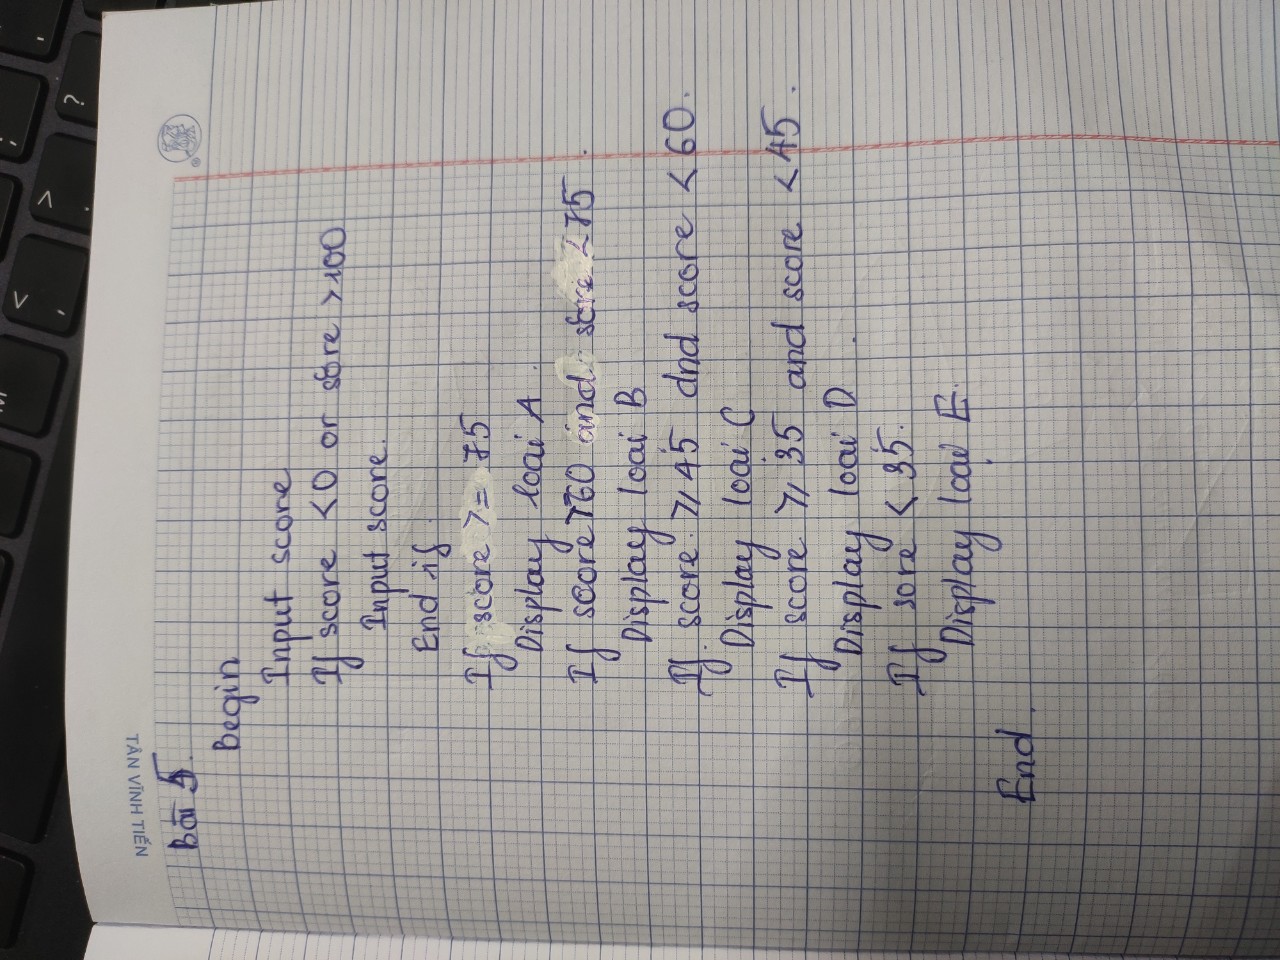 TÂN VĨNH TIẾN
Bài 5.
Begin
Input score
If score <0 or sore >100
Input score.
End if
If score >= 75
Display loại A.
If score >60 and sore <75.
Display loại B
If score ≥ 45 and score < 60.
Display loại C
If score ≥ 35 and score < 45.
Display loại D.
If sore < 35.
Display loại E.
End.
M
<
,
>
.
?
;
,